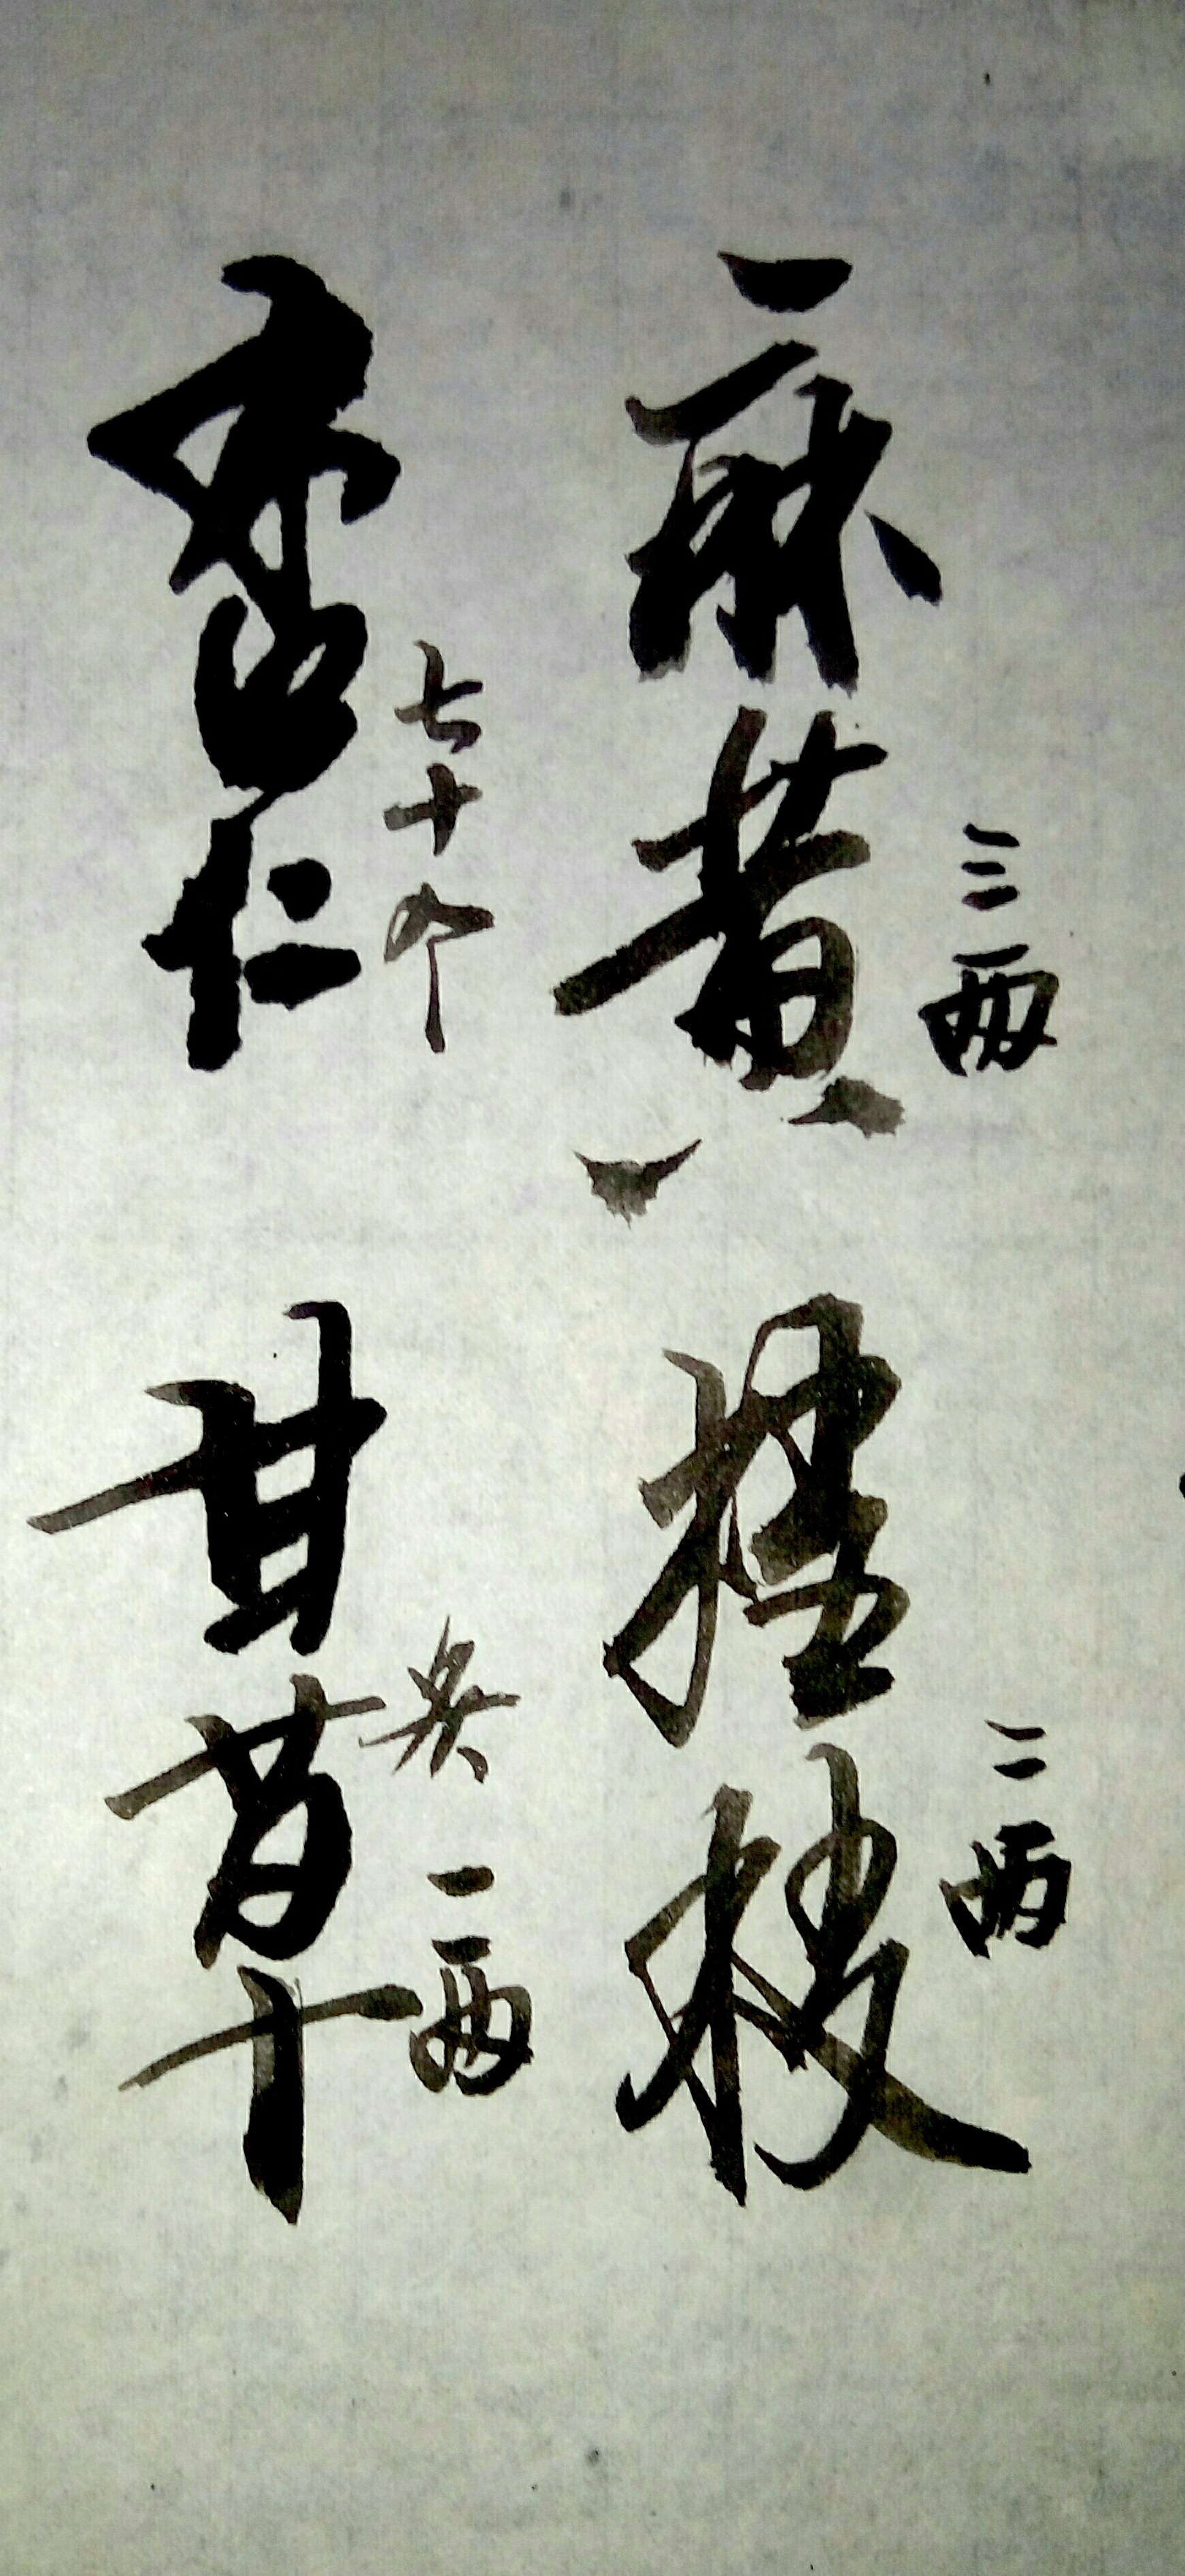 麻黄 三两 桂枝 二两
杏仁 七十个 甘草 炙 一两